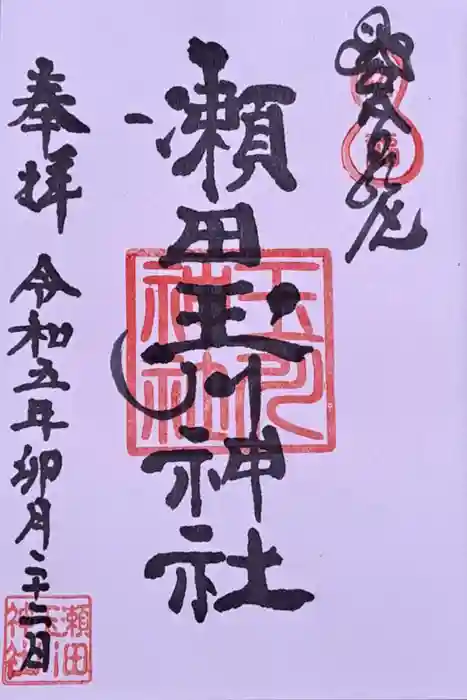 瀬田玉川神社
奉拝
令和五年卯月二十二日
玉川神社
瀬田玉川神社